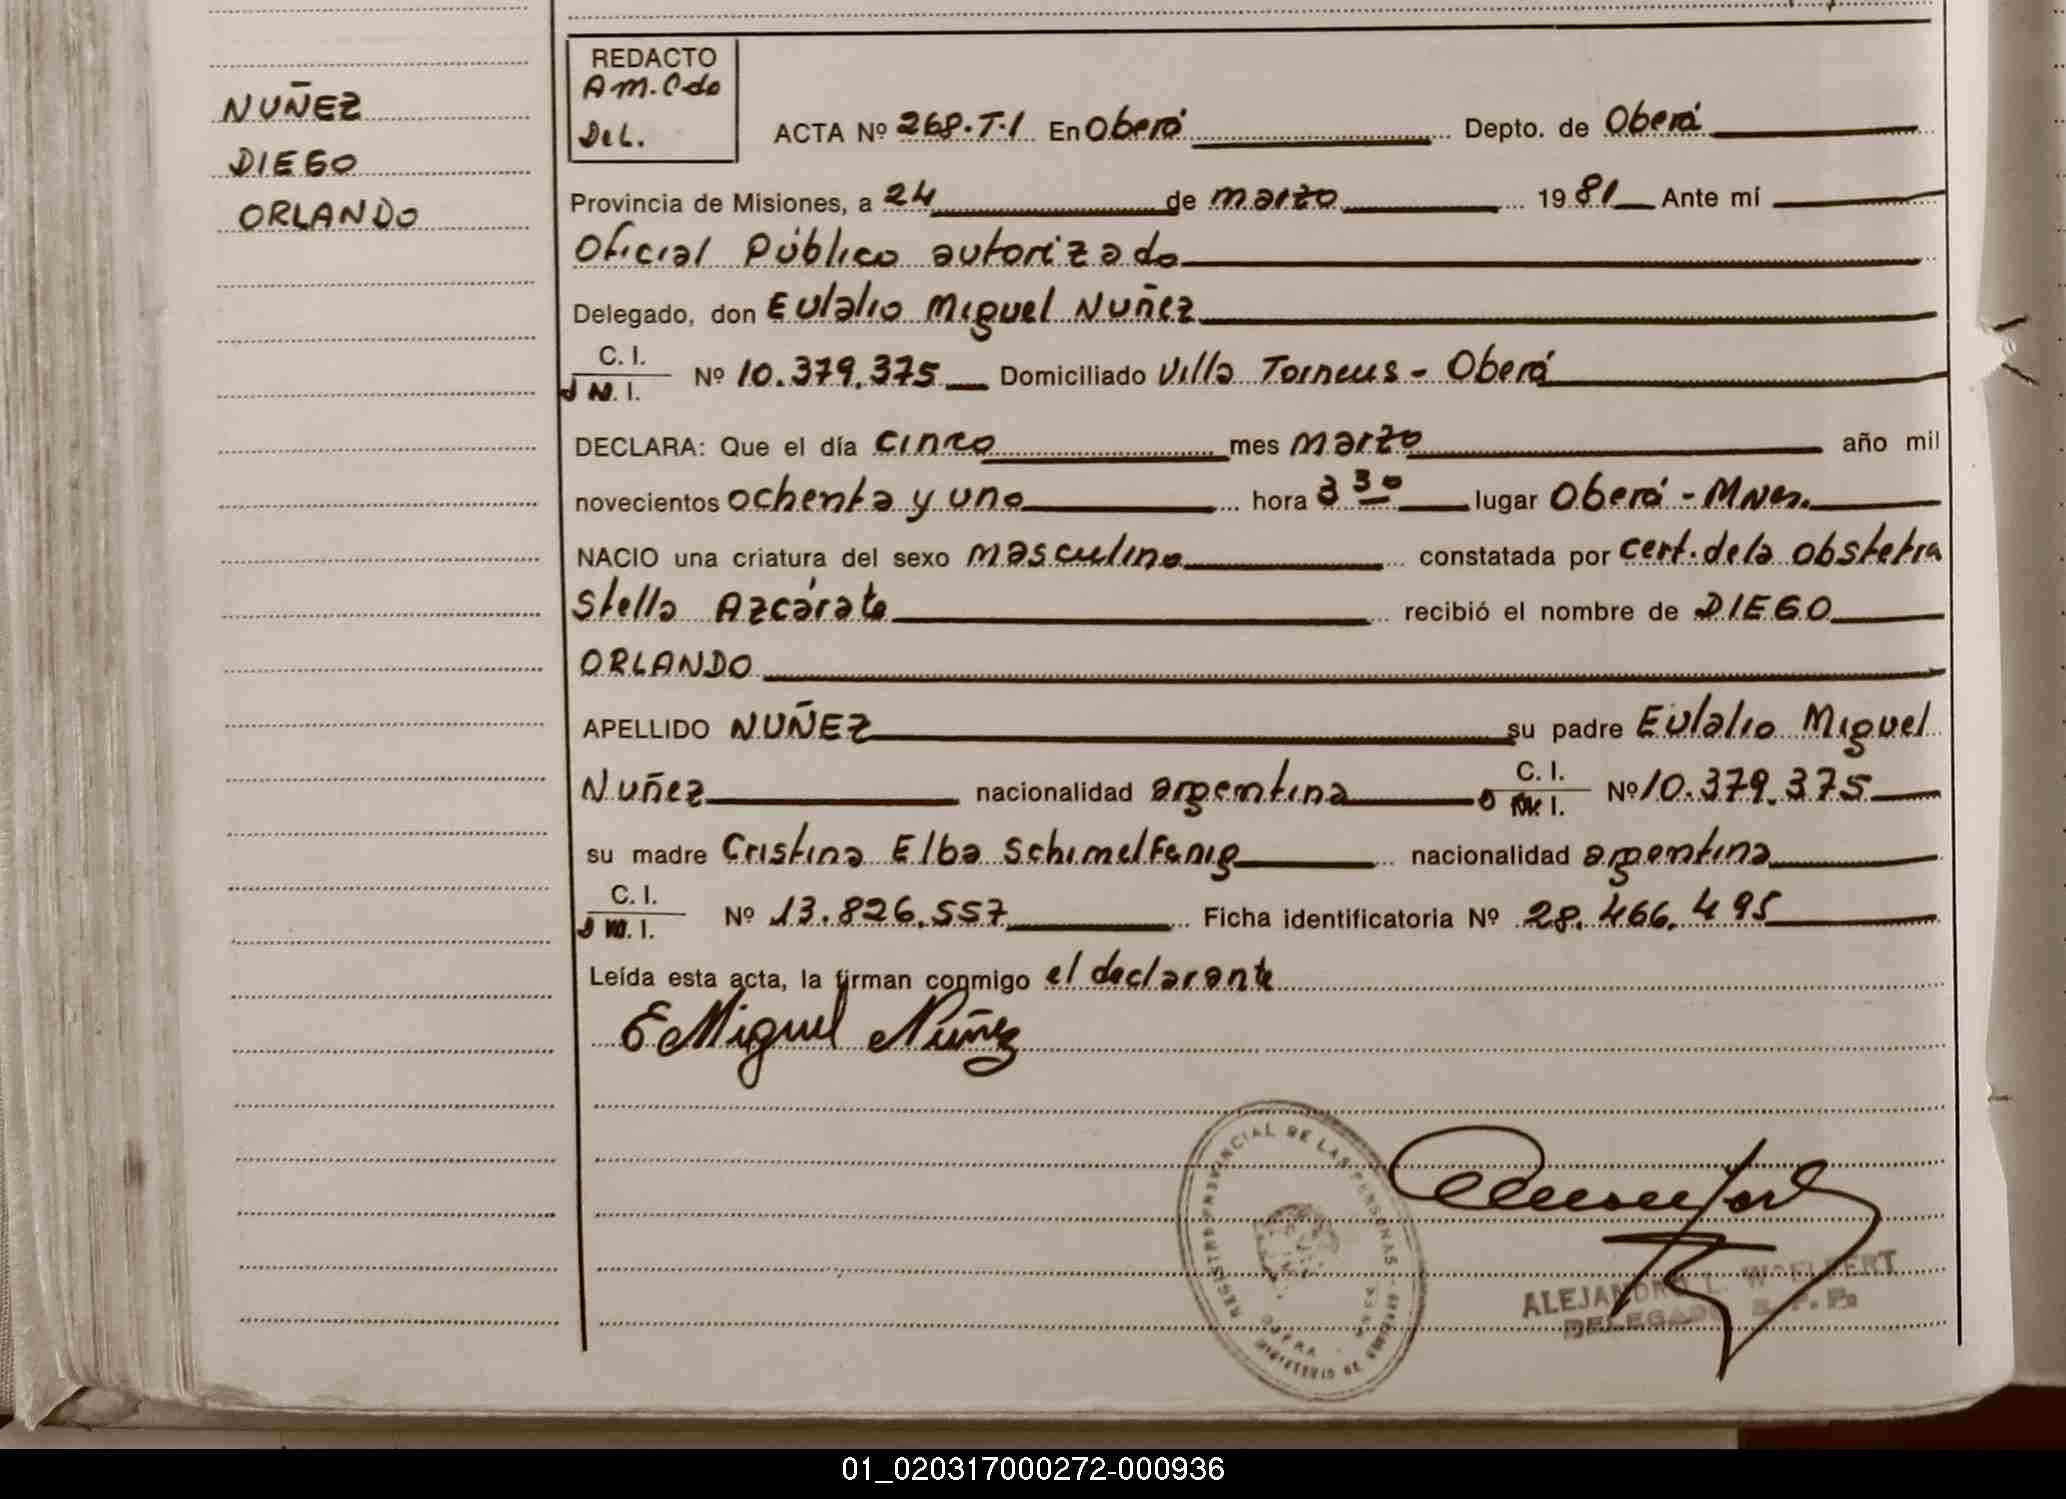 NUÑEZ
DIEGO
ORLANDO
REDACTO
A M. Cdo
DEL.
ACTA Nº 268.T.I En Oberá Depto. de Oberá
Provincia de Misiones, a 24 de marzo 1981 Ante mí
Oficial Público autorizado
Delegado, don Eulalio Miguel Nuñez
C. I.
D N. I. Nº 10.379.375 Domiciliado Villa Torneus - Oberá
DECLARA: Que el día cinco mes marzo año mil
novecientos ochenta y uno hora 3 30 lugar Oberá - Mnes.
NACIO una criatura del sexo masculino constatada por cert. de la obstetra
Stella Azcárate recibió el nombre de DIEGO
ORLANDO
APELLIDO NUÑEZ su padre Eulalio Miguel
Nuñez nacionalidad argentina C. I. D N. I. Nº 10.379.375
su madre Cristina Elba Schimelfenig nacionalidad argentina
C. I.
D N. I. Nº 13.826.557 Ficha identificatoria Nº 28.466.495
Leída esta acta, la firman conmigo el declarante
E Miguel Núñez
REGISTRO PROVINCIAL DE LAS PERSONAS
OBERA
ALEJANDRO L. WOELFERT
DELEGADO R. P. P.
01_020317000272-000936